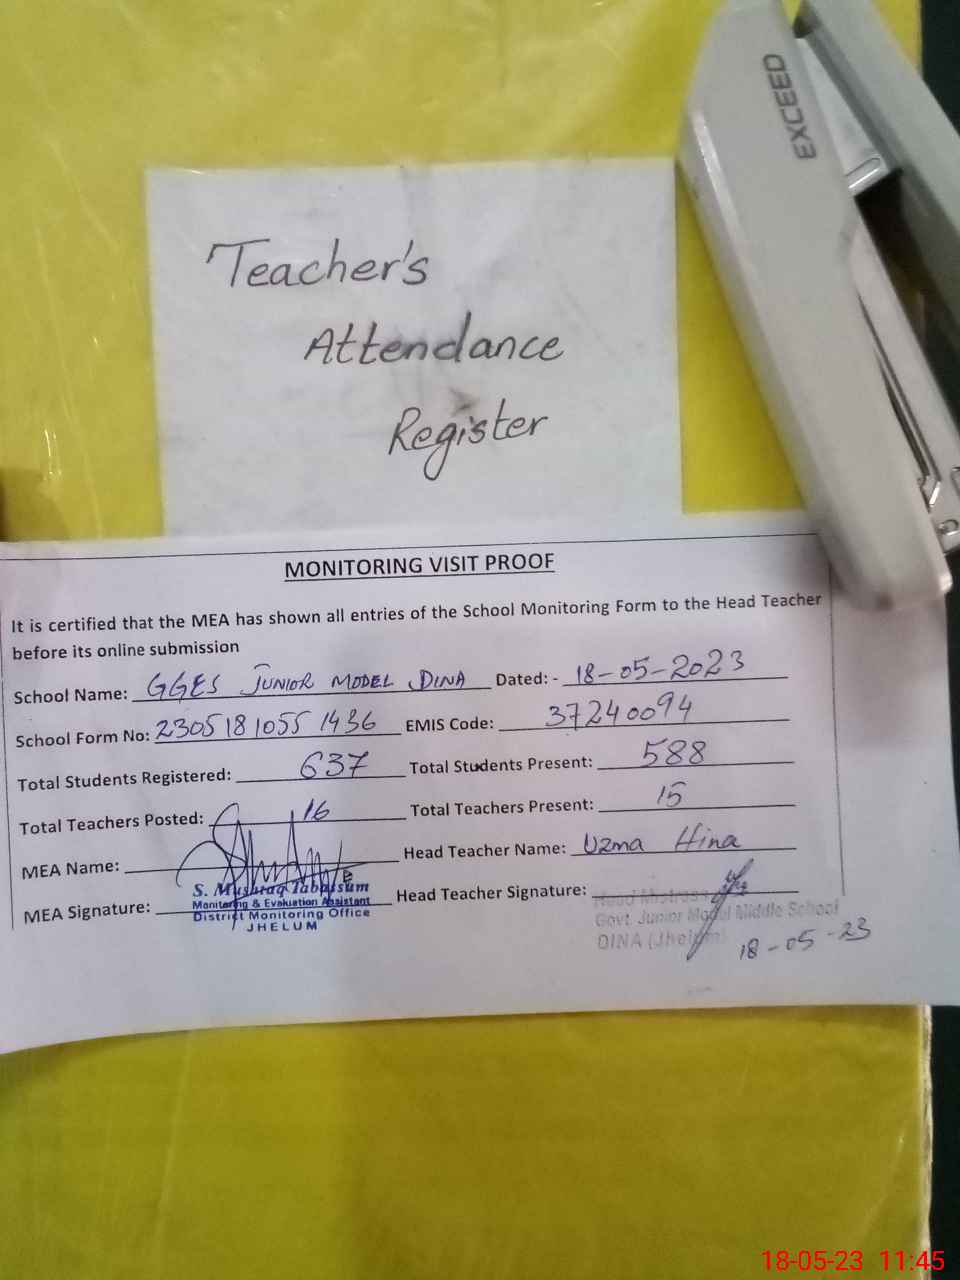 EXCEED
Teacher's
Attendance
Register
MONITORING VISIT PROOF
It is certified that the MEA has shown all entries of the School Monitoring Form to the Head Teacher
before its online submission
School Name: GGES JUNIOR MODEL DINA Dated: - 18-05-2023
School Form No: 2305181055 1436 EMIS Code: 37240094
Total Students Registered: 637 Total Students Present: 588
Total Teachers Posted: 16 Total Teachers Present: 15
MEA Name: Head Teacher Name: Uzma Hina
MEA Signature: Head Teacher Signature:
S. Mushtaq Tabassum
Monitoring & Evaluation Assistant
District Monitoring Office
JHELUM
Head Mistress
Govt. Junior Model Middle School
DINA (Jhelum)
18-05-23
18-05-23 11:45